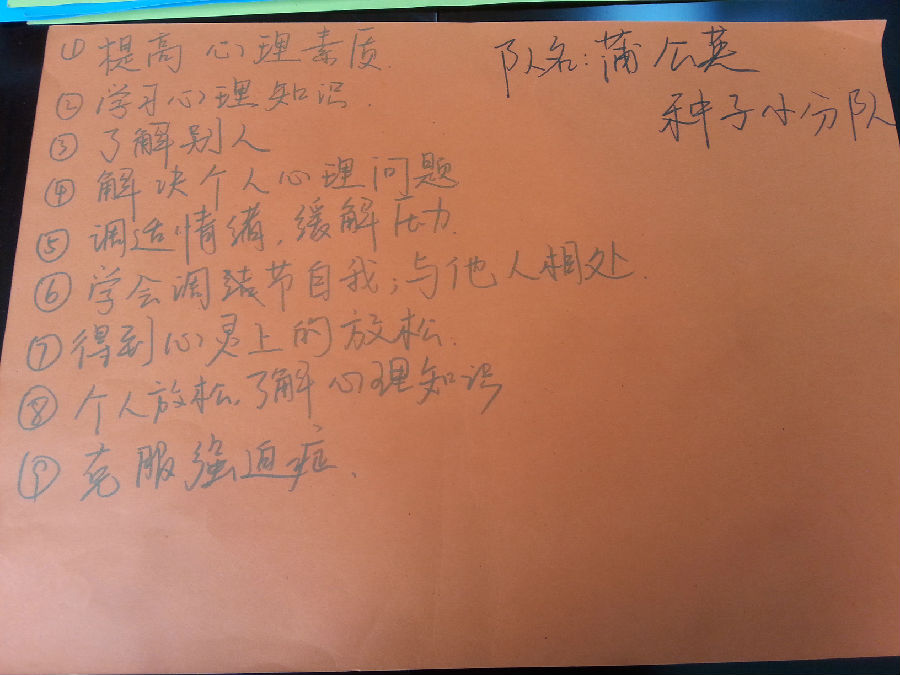 ① 提高心理素质.
队名:蒲公英
种子小分队
② 学习心理知识.
③ 了解别人
④ 解决个人心理问题
⑤ 调适情绪,缓解压力.
⑥ 学会调结节自我;与他人相处.
⑦ 得到心灵上的放松.
⑧ 个人放松,了解心理知识
⑨ 克服强迫症.